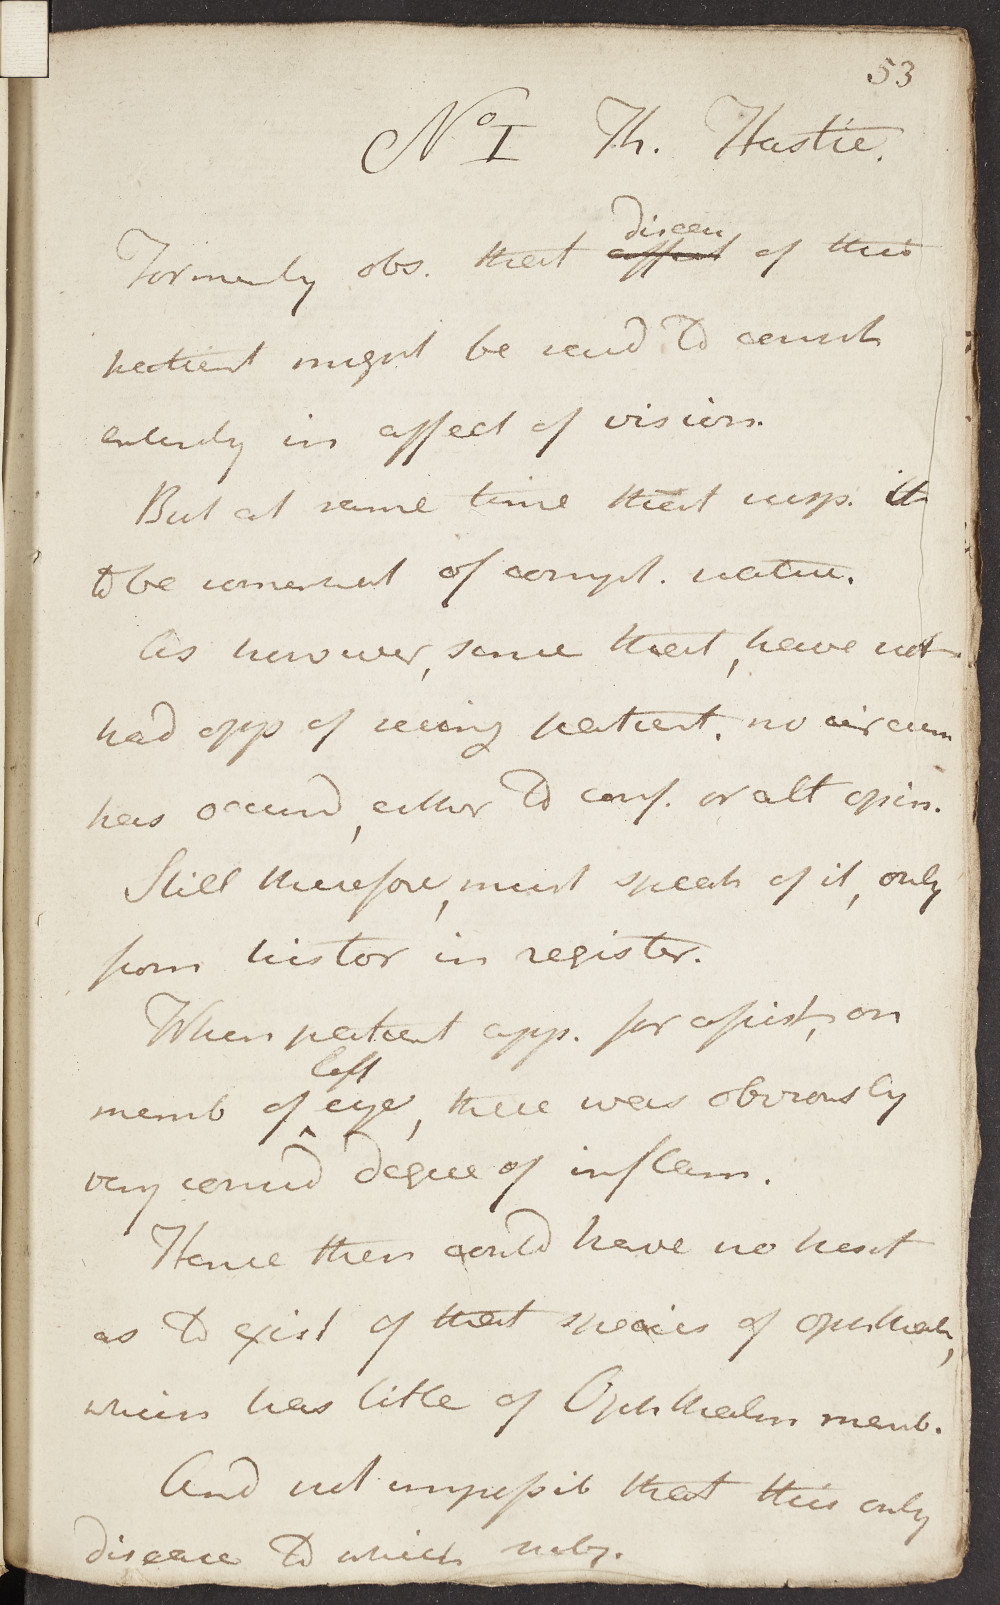 53
No I Th. Hastie.
disea
Formerly obs. that affect of this
patient might be said to consist
entirely in affect of vision.
But at same time that susp. it
to be somewhat of compl. nature.
As however, since that, have not
had opp of seeing patient, no circum
has occurd, either to conf. or alt opin.
Still therefore, must speak of it, only
from histor in register.
When patient app. for assist, on
left
memb of eye, there was obviously
very consid degree of inflam.
Hence then could have no hesit
as to exist of that species of ophthalm,
which has title of Ophthalm memb.
And not imposib that this only
disease to which subj.